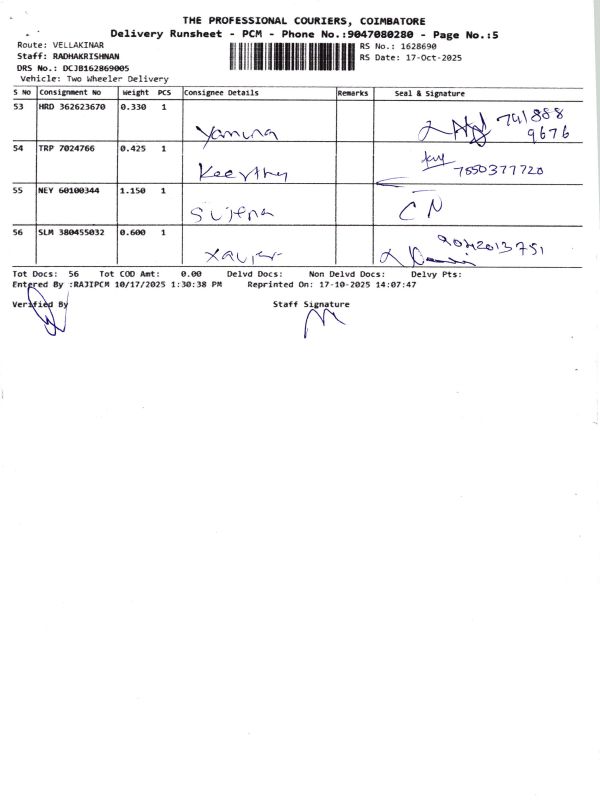 THE PROFESSIONAL COURIERS, COIMBATORE
Delivery Runsheet - PCM - Phone No.:9047080280 - Page No.:5
Route: VELLAKINAR RS No.: 1628690
Staff: RADHAKRISHNAN RS Date: 17-Oct-2025
DRS No.: DCJB162869005
Vehicle: Two Wheeler Delivery
S No Consignment No Weight PCS Consignee Details Remarks Seal & Signature
53 HRD 362623670 0.330 1 Yamuna 741888 9676
54 TRP 7024766 0.425 1 Keerthy 7550377720
55 NEY 60100344 1.150 1 Sujena CN
56 SLM 380455032 0.600 1 Xavier 9042013751
Tot Docs: 56 Tot COD Amt: 0.00 Delvd Docs: Non Delvd Docs: Delvy Pts:
Entered By :RAJIPCM 10/17/2025 1:30:38 PM Reprinted On: 17-10-2025 14:07:47
Verified By Staff Signature